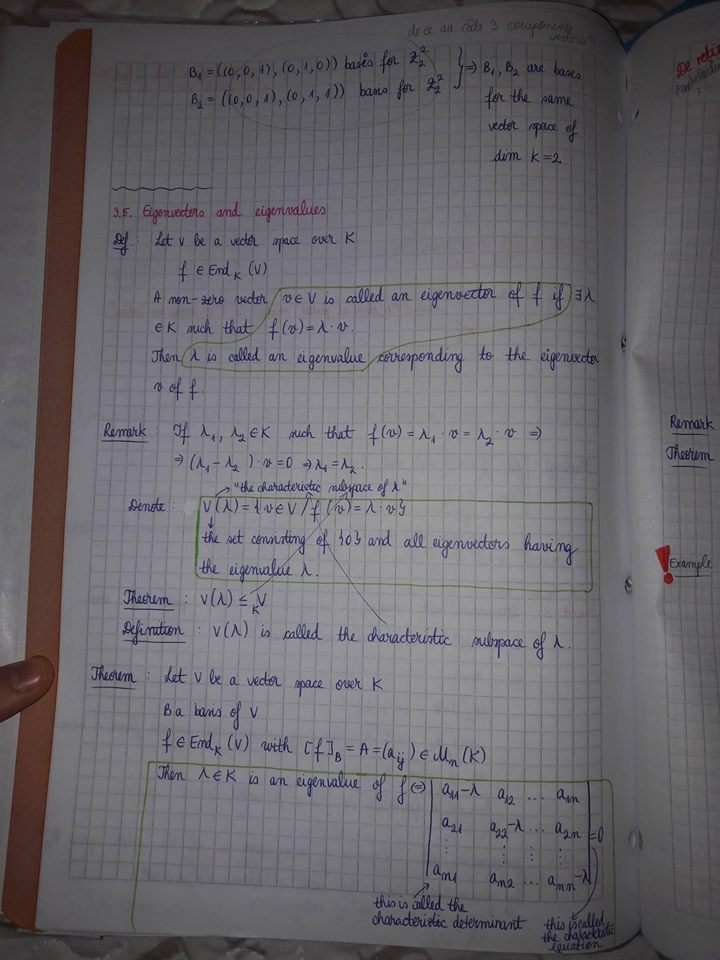 de ce au câte 3 components
vectors?
B₁ = ((0,0,1), (0,1,0)) basis for Z₂²
B₂ = ((0,0,1), (0,1,1)) basis for Z₂²
} ⇒ B₁, B₂ are bases
for the same
vector space of
dim k=2
3.5. Eigenvectors and eigenvalues
Def: Let V be a vector space over K
f ∈ End_K (V)
A non-zero vector v∈V is called an eigenvector of f if ∃ λ
∈ K such that f(v) = λ·v.
Then λ is called an eigenvalue corresponding to the eigenvector
v of f.
Remark: If λ₁, λ₂ ∈ K such that f(v) = λ₁·v = λ₂·v ⇒
⇒ (λ₁ - λ₂)·v = 0 ⇒ λ₁ = λ₂.
"the characteristic subspace of λ"
Denote: V(λ) = {v∈V / f(v) = λ·v}
the set consisting of {0} and all eigenvectors having
the eigenvalue λ.
Theorem: V(λ) ≤_K V
Definition: V(λ) is called the characteristic subspace of λ.
Theorem: Let V be a vector space over K
B a basis of V
f ∈ End_K (V) with [f]_B = A = (a_ij) ∈ M_n(K)
Then λ∈K is an eigenvalue of f ⇔ | a₁₁-λ a₁₂ ... a₁n |
| a₂₁ a₂₂-λ ... a₂n | = 0
⋮ ⋮ ⋮ ⋮
| an₁ an₂ ... ann-λ |
this is called the
characteristic determinant
this is called
the characteristic
equation
De reți
Remark
Theorem
! Example